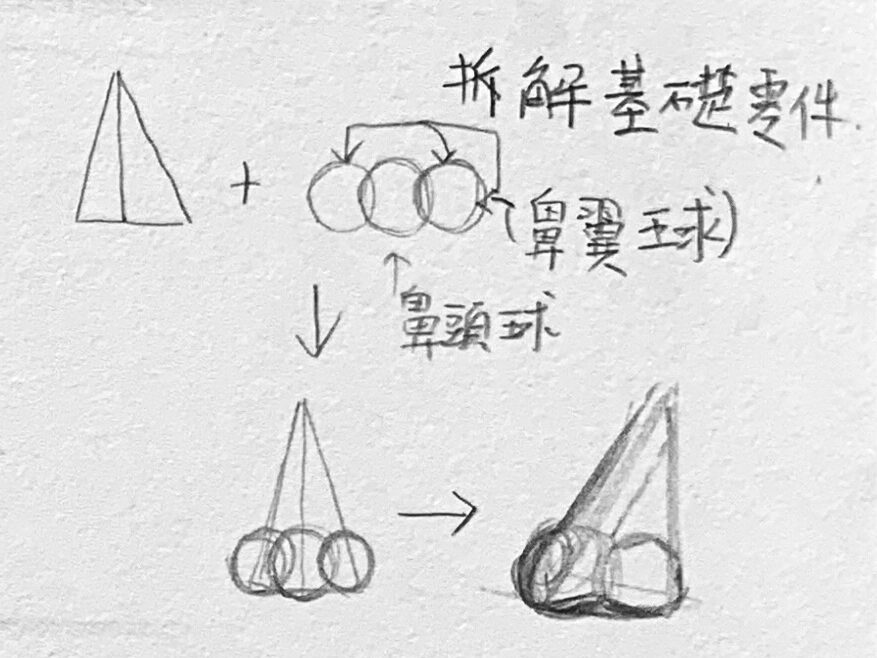 拆解基礎零件.
(鼻翼球)
鼻頭球